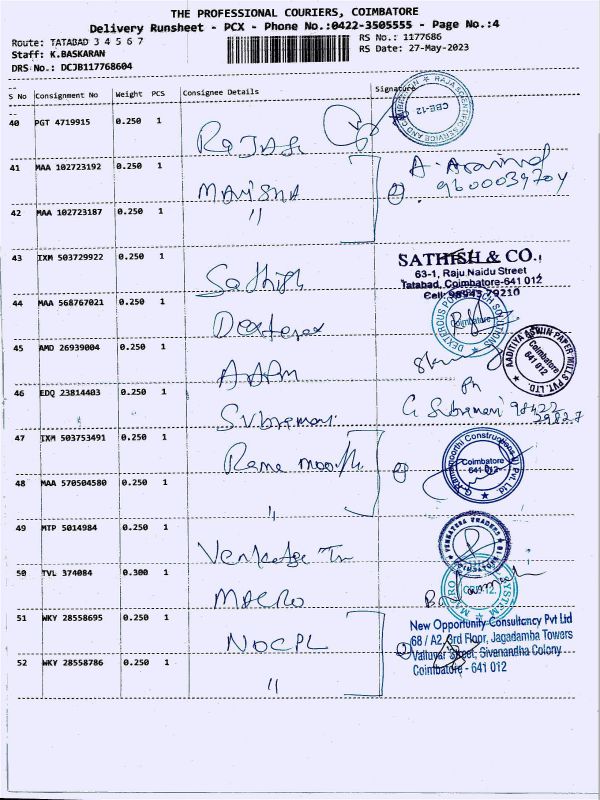 THE PROFESSIONAL COURIERS, COIMBATORE
Delivery Runsheet - PCX - Phone No.:0422-3505555 - Page No.:4
Route: TATABAD 3 4 5 6 7
RS No.: 1177686
Staff: K.BASKARAN
RS Date: 27-May-2023
DRS No.: DCJB117768604
S No Consignment No Weight PCS Consignee Details Signature
40 PGT 4719915 0.250 1
CBE-12
41 MAA 102723192 0.250 1 MANISHA
9600039704
42 MAA 102723187 0.250 1 "
43 IXM 503729922 0.250 1 Sathish
SATHISH & CO.,
63-1, Raju Naidu Street
Tatabad, Coimbatore-641 012
Cell: 98943 79210
44 MAA 568767021 0.250 1
Coimbatore
45 AMD 26939004 0.250 1 AAPM
AADITIYA ASWIN PAPER MILLS PVT. LTD.
Coimbatore
641 012
46 EDQ 23814403 0.250 1 Subramani
G. Subramani 98422
47 IXM 503753491 0.250 1 Rama moorthi
Coimbatore
641 012
48 MAA 570504580 0.250 1 "
49 MTP 5014984 0.250 1
VENKATESA TRADERS
50 TVL 374084 0.300 1 MACRO
MACRO SYSTEM
51 WKY 28558695 0.250 1 NOCPL
New Opportunity Consultancy Pvt Ltd
68 / A2, 3rd Floor, Jagadamba Towers
Valluvar Street, Sivanandha Colony
Coimbatore - 641 012
52 WKY 28558786 0.250 1 "